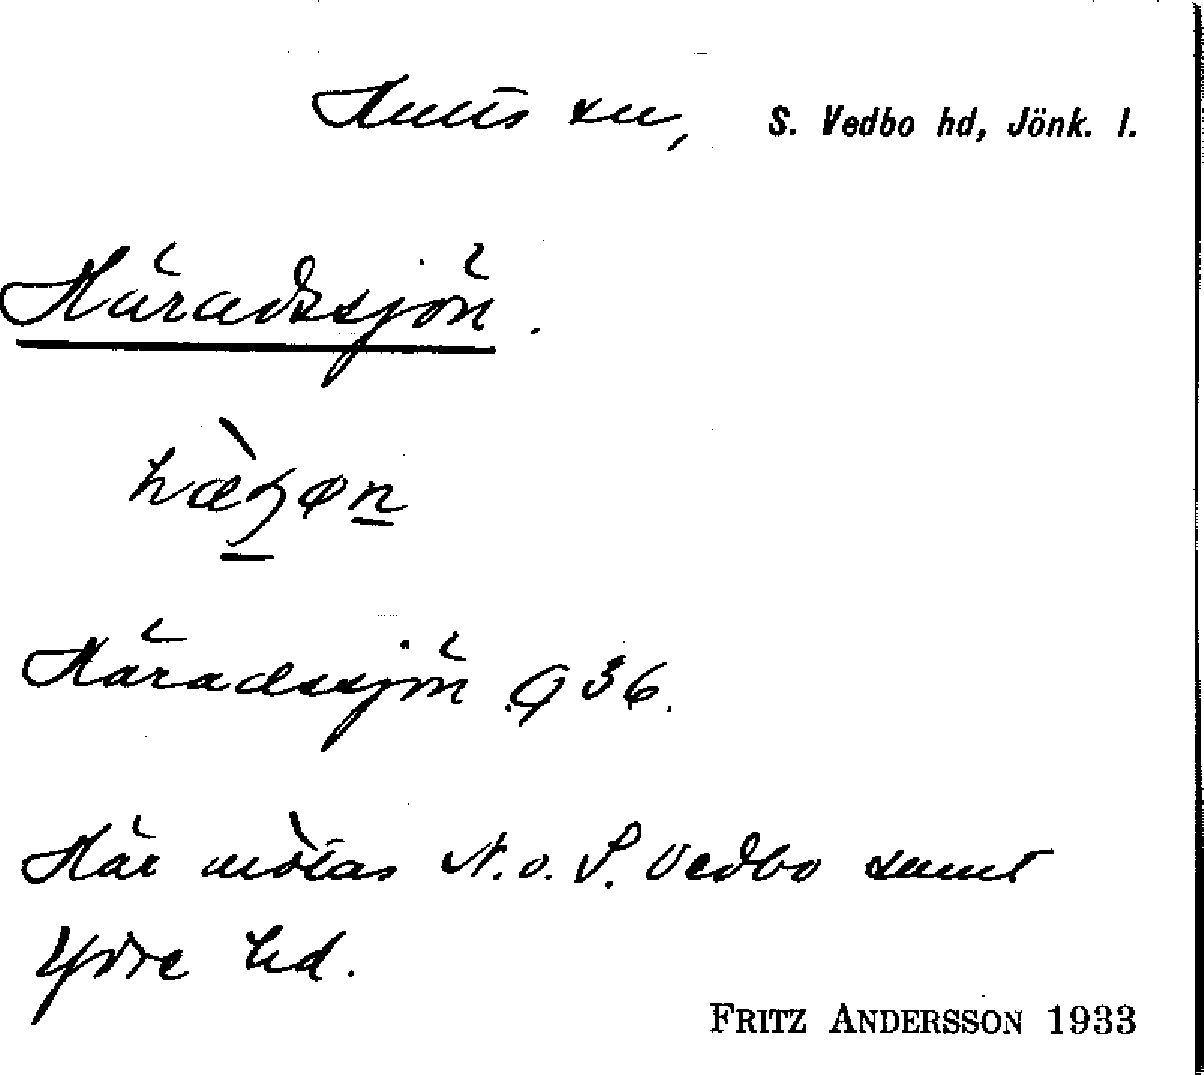 Hults sn, S. Vedbo hd, Jönk. l.
Häradssjön.
Häradssjön G 36.
Här mötas N. o. S. Vedbo samt
Ydre hd.
FRITZ ANDERSSON 1933